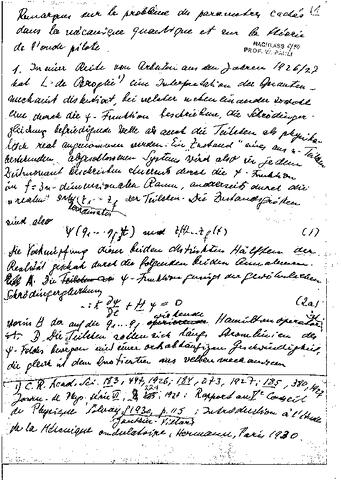 Remarques sur le problème des paramètres cachés
dans la mécanique quantique et sur la théorie
de l'onde pilote
NACHLASS
PROF. W. PAULI
1. In einer Reihe von Arbeiten aus den Jahren 1926/27
hat L. de Broglie¹) eine Interpretation der Quanten-
mechanik diskutiert, bei welcher nebeneinander sowohl
eine durch die ψ-Funktion beschriebene, die Schrödinger-
gleichung befriedigende Welle als auch die Teilchen als physika-
lisch real angenommen werden. Ein Zustand eines aus Teilchen
bestehenden, abgeschlossenen Systems wird also in jedem
Zeitmoment beschrieben einerseits durch die ψ-Funktion
im f = 3n-dimensionalen Raum, andrerseits durch die
"realen" der Teilchen. Die Zustandsgrößen
sind also
ψ(q₁ ... q_f, t) und (1)
Die Verknüpfung dieser beiden Hälften der
Realität geschah durch die folgenden beiden Annahmen
A. Die ψ-Funktion genügt der gewöhnlichen
Schrödingergleichung
∂ψ/∂t + Hψ = 0 (2a)
worin H der auf die q₁ ... q_f wirkende Hamiltonoperator
ist. B. Die Teilchen sollen sich längs Stromlinien des
ψ-Feldes bewegen mit einer Geschwindigkeit,
die gleich ist dem Quotienten aus
1) C. R. Acad. Sci. 183, 447, 1926; 184, 273, 1927; 185, 380, 1927
Journ. de Phys. série VI, Rapport au Vᵉ Conseil
de Physique Solvay 1930, p. 115; Introduction à l'étude
Gauthier-Villars
de la Mécanique ondulatoire, Hermann, Paris 1930